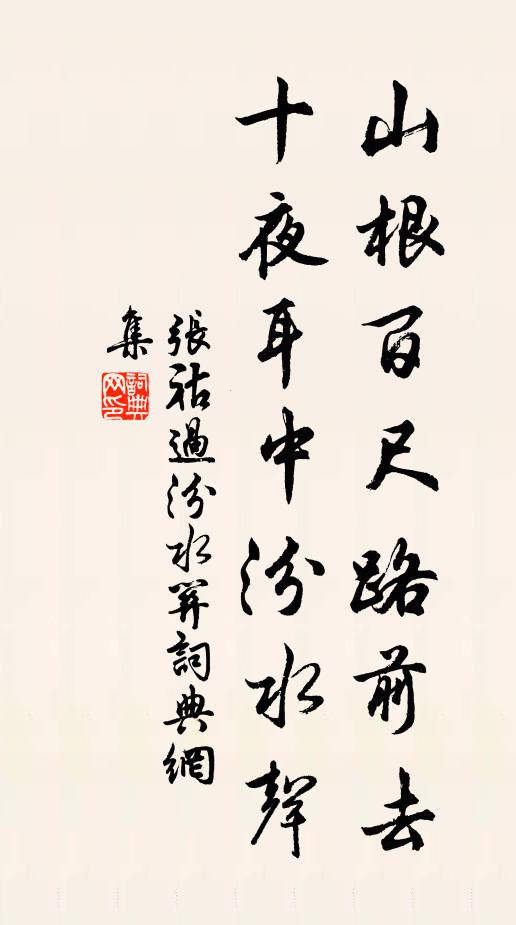 山根百尺路前去
十夜耳中汾水聲
張祜過汾水関詞典網
集
詞典
网印